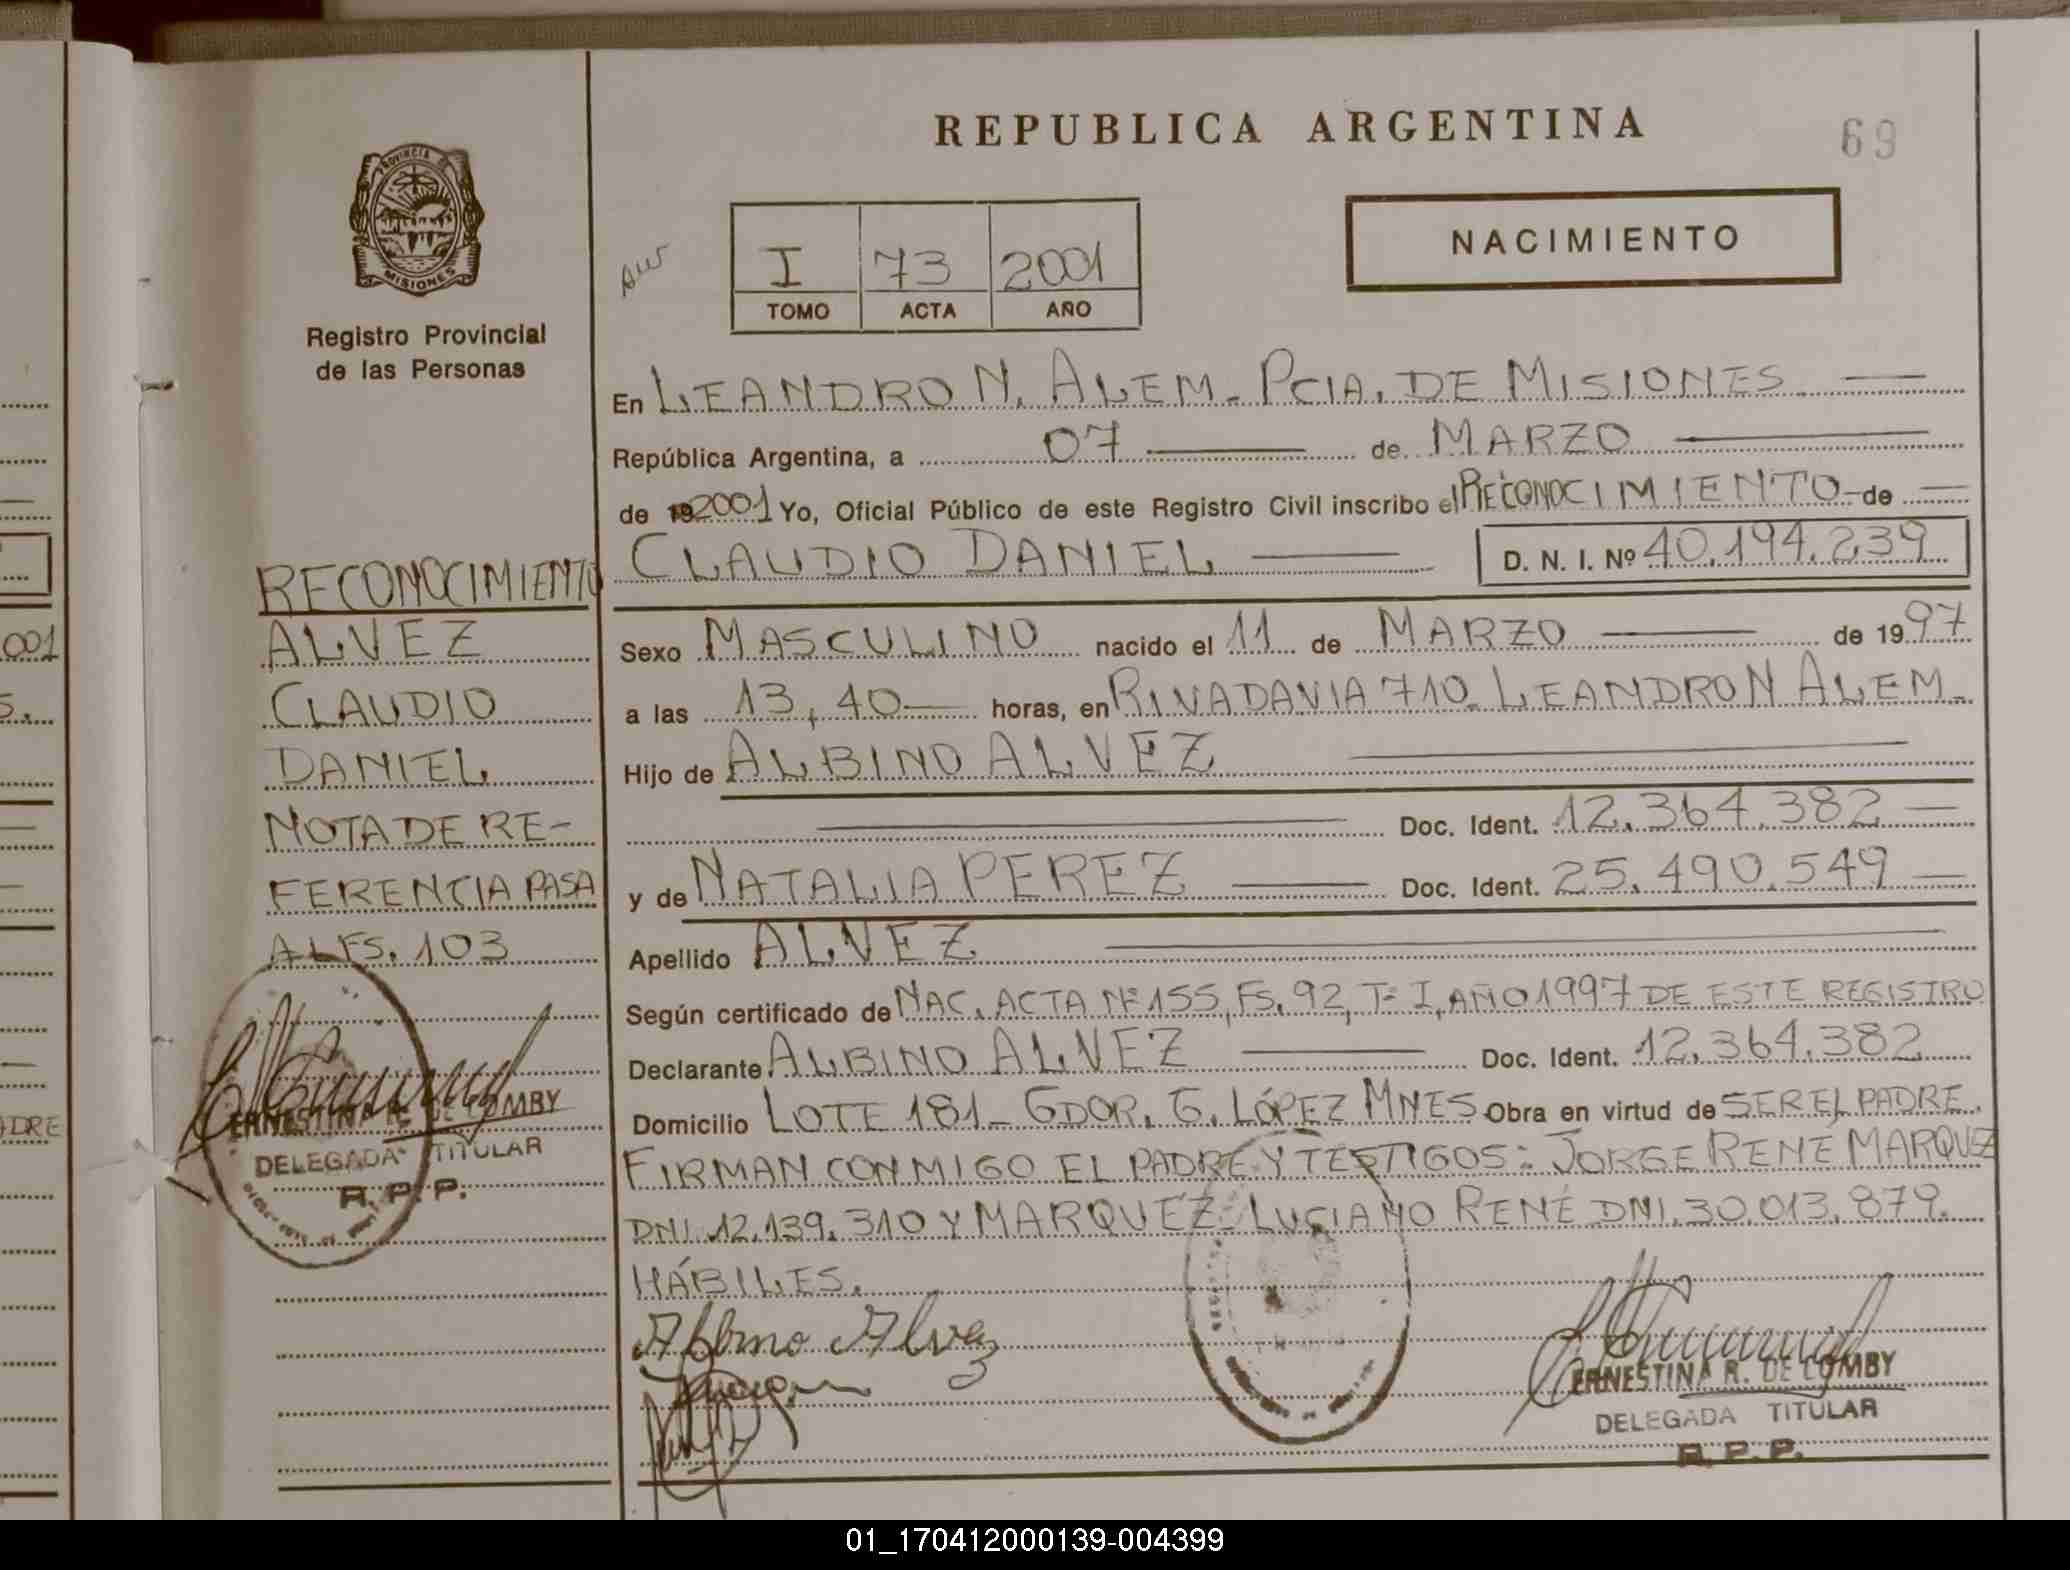 REPUBLICA ARGENTINA
69
PROVINCIA DE
MISIONES
Registro Provincial
de las Personas
I 73 2001
TOMO ACTA AÑO
NACIMIENTO
En LEANDRO N. ALEM - PCIA. DE MISIONES
República Argentina, a 07 de MARZO
de 192001 Yo, Oficial Público de este Registro Civil inscribo el RECONOCIMIENTO de
CLAUDIO DANIEL D. N. I. Nº 40.194.239
Sexo MASCULINO nacido el 11 de MARZO de 1997
a las 13,40 horas, en RIVADAVIA 710 - LEANDRO N ALEM -
Hijo de ALBINO ALVEZ
Doc. Ident. 12.364.382
y de NATALIA PEREZ Doc. Ident. 25.490.549
Apellido ALVEZ
Según certificado de NAC. ACTA Nº 155, FS. 92, Tº I, AÑO 1997 DE ESTE REGISTRO
Declarante ALBINO ALVEZ Doc. Ident. 12.364.382
Domicilio LOTE 181 - GDOR. G. LÓPEZ MNES Obra en virtud de SER EL PADRE.
FIRMAN CONMIGO EL PADRE Y TESTIGOS: JORGE RENE MARQUEZ
DNI. 12.139.310 Y MARQUEZ, LUCIANO RENÉ DNI. 30.013.879.
HÁBILES.
Albino Alvez
ERNESTINA R. DE COMBY
DELEGADA TITULAR
R. P. P.
RECONOCIMIENTO
ALVEZ
CLAUDIO
DANIEL
NOTA DE RE-
FERENCIA PASA
AL FS. 103
ERNESTINA R. DE COMBY
DELEGADA TITULAR
R. P. P.
001
S.
ADRE
01_170412000139-004399